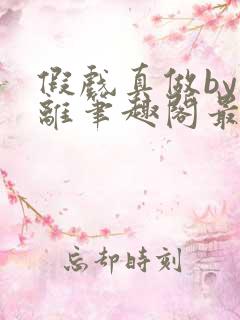 假戲真做by
離筆趣閣最
忘却時刻